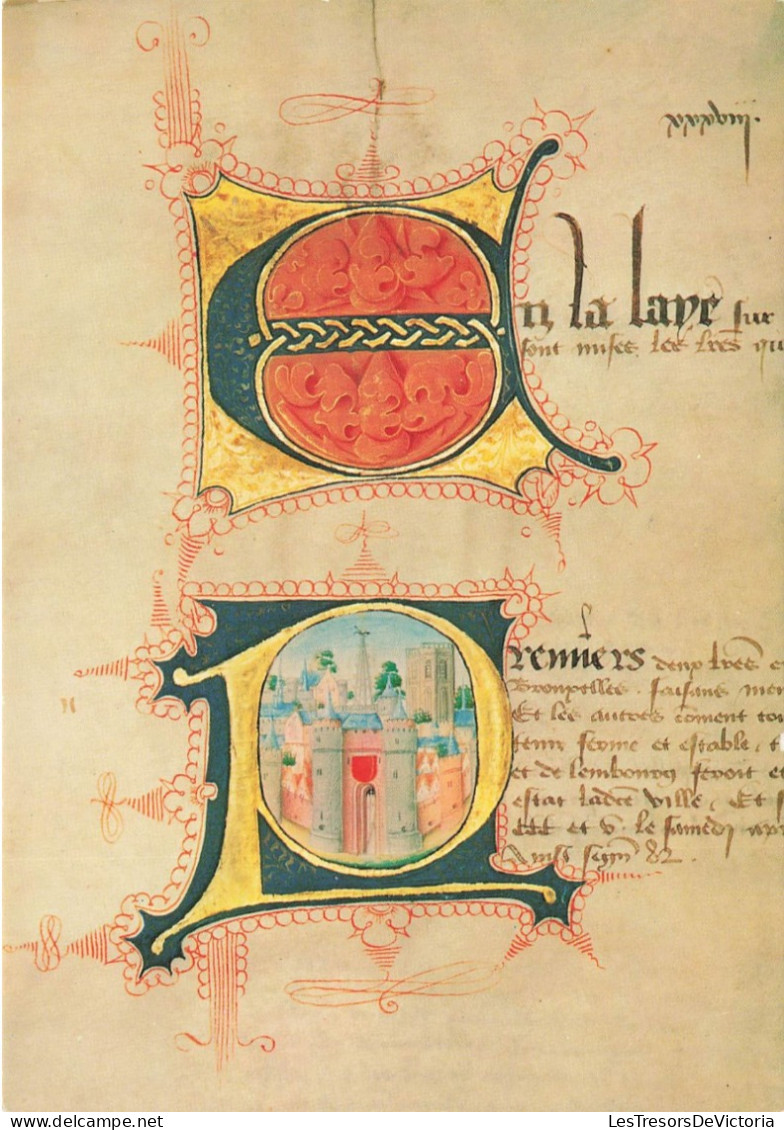 xxxviii.
En la laye sur
sont mises les lres qu
Premiers deux lres e
Brouxelles. faisans men
Et les autres coment tou
tenir ferme et estable, t
et de lembourg seroit et
estat ladce ville, Et s
et v. le samedi
Ainsi segn 82.
LesTresorsDeVictoria